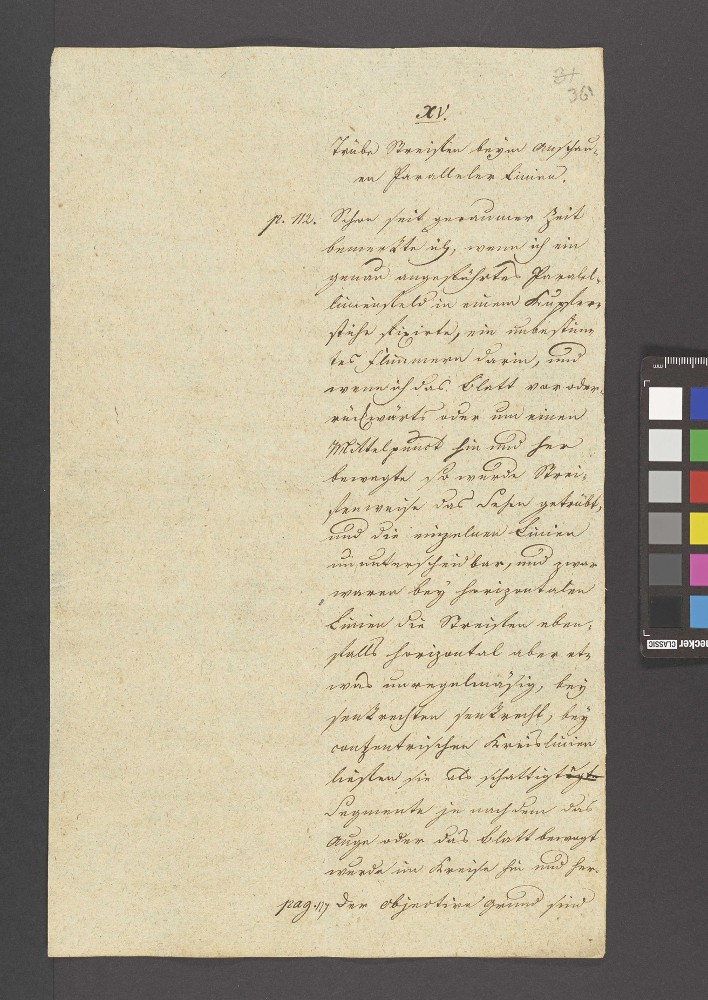 31
36
XV.
Trübe Streifen beym Anschau-
en Paralleler Linien.
p. 112. Schon seit geraumer Zeit
bemerkte ich, wenn ich ein
genau ausgeführtes Paralel-
linienfeld in einem Kupfer-
stiche fixirte, ein unbestimm
tes Flimmern darin, und
wenn ich das Blatt vor oder
rückwärts oder um einen
Mittelpunct hin und her
bewegte so wurde Strei-
fenweise das Sehen getrübt,
und die einzelnen Linien
ununterscheidbar, und zwar
waren bey horizontalen
Linien die Streifen eben-
falls horizontal aber et-
was unregelmäsig, bey
senkrechten senkrecht, bey
conzentrischen Kreislinien
liefen sie als schattigte
Segmente je nachdem das
Auge oder das Blatt bewegt
wurde im Kreise hin und her.
pag. 117 Der objective Grund sind